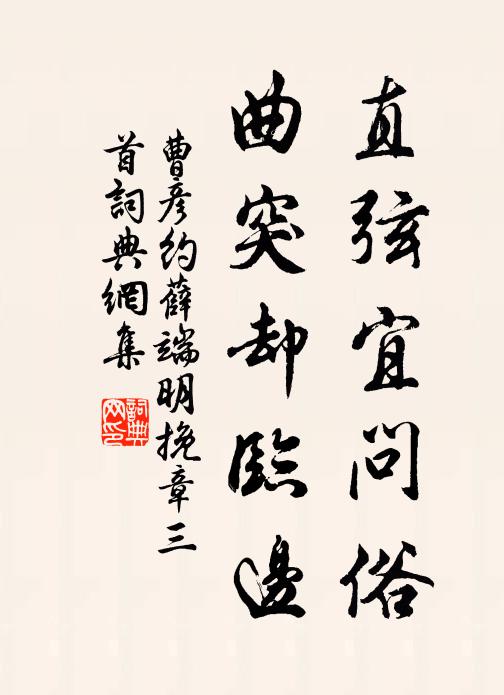 直弦宜問俗
曲突却臨邊
曹彦約薛端明挽章三
首詞典網集
詞典
网印